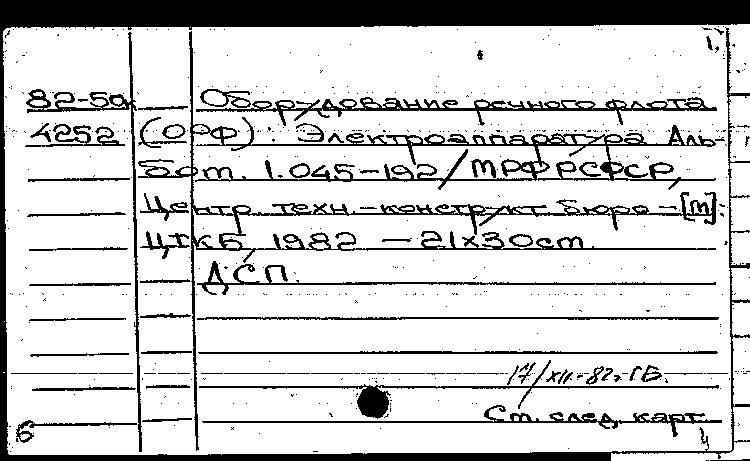 1.
82-5а Оборудование речного флота
4252 (ОРФ): Электроаппаратура Аль-
бом. 1.045-192/МРФРСФСР,
Центр. техн.-конструкт. бюро -[м]:
ЦТКБ, 1982 - 21x30cm.
ДСП.
17/XII-82г. ГБ.
См. след. карт.
6